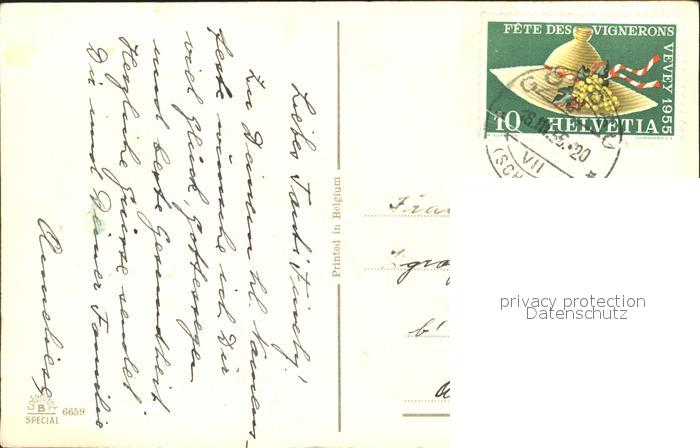 Liebes Tanti Finely!
Zu Deinem hl. Namens-
feste wünsche ich Dir
viel Glück, Gottessegen
und beste Gesundheit
Herzliche Grüsse sendet
Dir und Deiner Familie
Anneliese
B
SPECIAL
6659
Printed in Belgium
FÊTE DES VIGNERONS
VEVEY 1955
10 HELVETIA
VII
privacy protection
Datenschutz